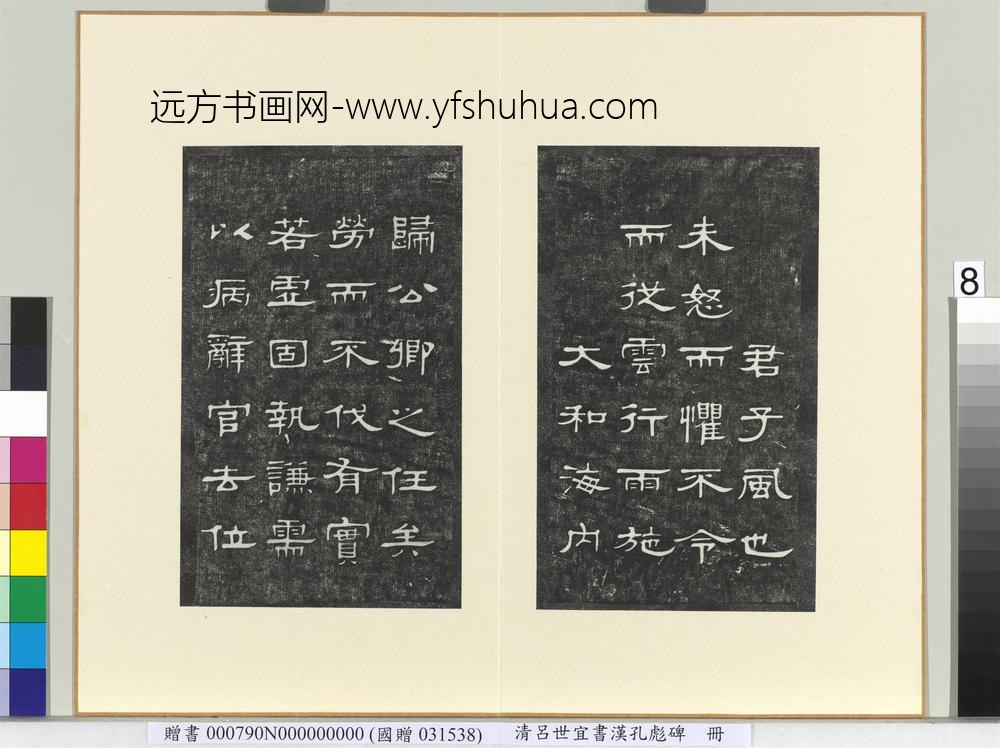 远方书画网-www.yfshuhua.com
君子風也
未怒而懼不令
而從雲行雨施
大和海内
歸公卿之任矣
勞而不伐有實
若虛固執謙需
以病辭官去位
8
贈書000790N000000000 (國贈 031538) 清呂世宜書漢孔彪碑 冊